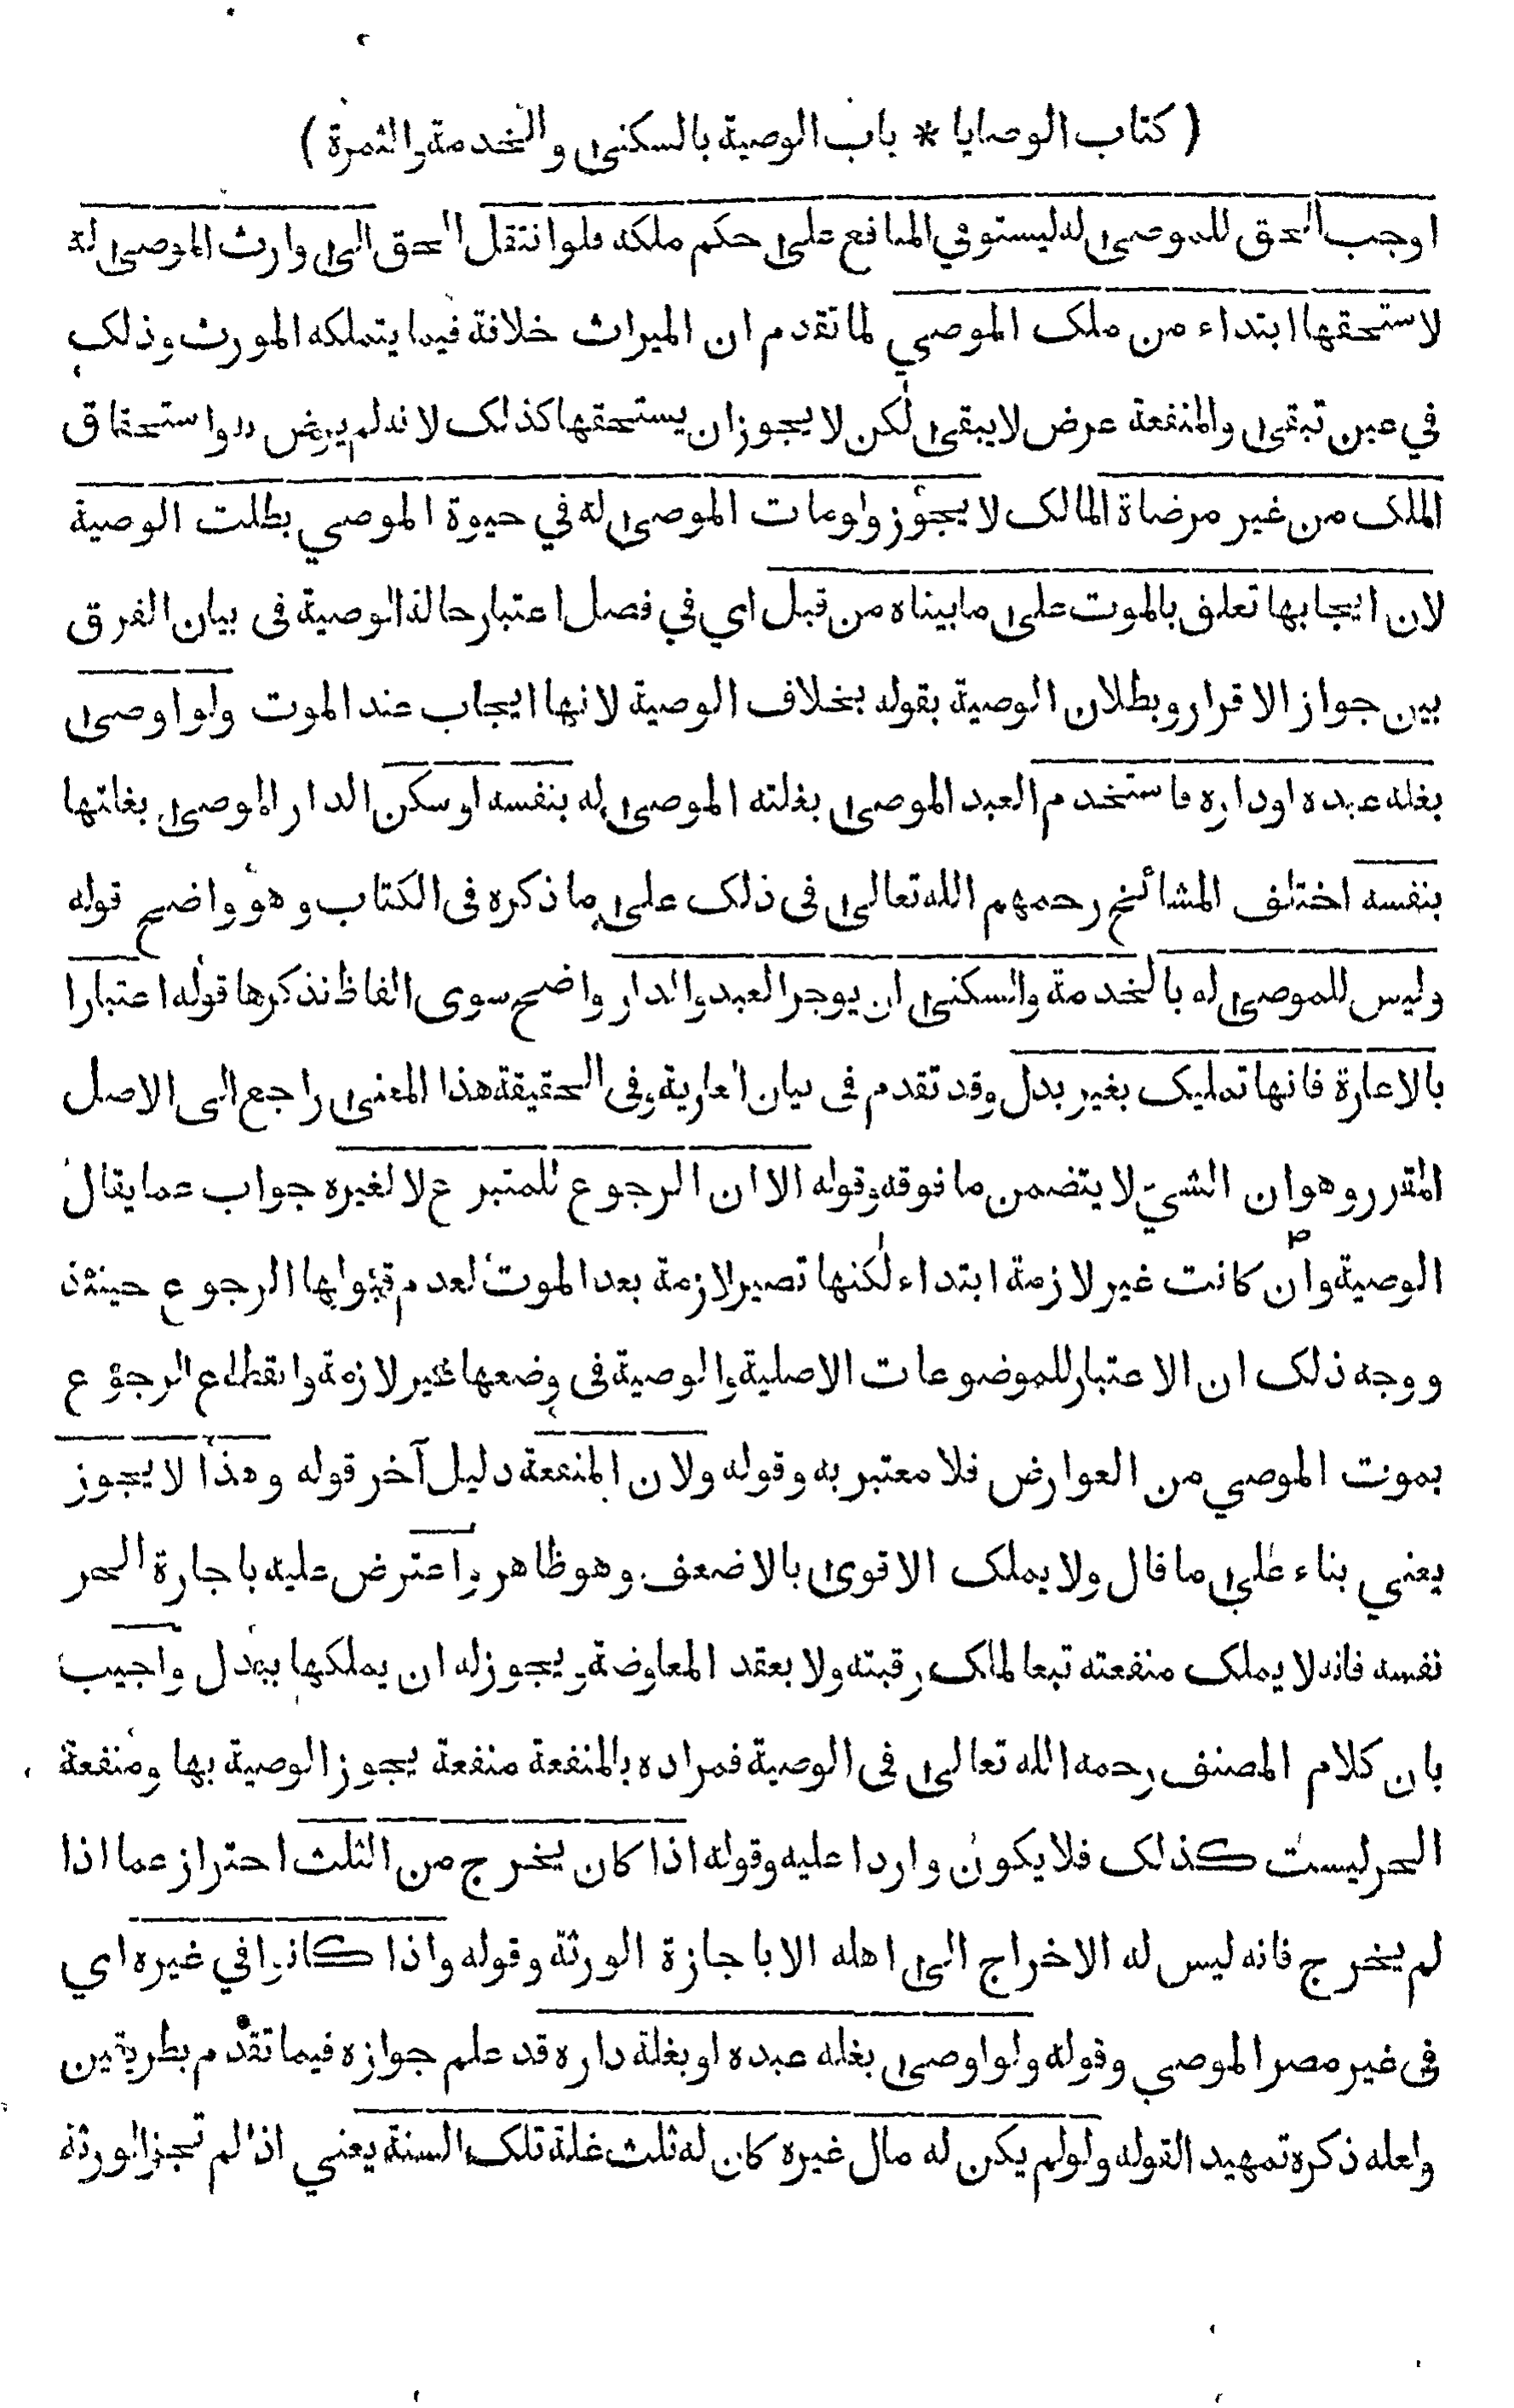 ( كتاب الوصايا * باب الوصية بالسكنى والخدمة والثمرة )
اوجب الحق للموصى له ليستوفي المنافع على حكم ملكه فلو انتقل الحق الى وارث الموصى له
لاستحقها ابتداء من ملك الموصي لما تقدم ان الميراث خلافة فيما يتملكه المورث وذلك
في عين تبقى والمنفعة عرض لا يبقى لكن لا يجوز ان يستحقها كذلك لانه لم يرض به واستحقاق
الملك من غير مرضاة المالك لا يجوز ولو مات الموصى له في حيوة الموصي بطلت الوصية
لان ايجابها تعلق بالموت على ما بيناه من قبل اي في فصل اعتبار حالة الوصية فى بيان الفرق
بين جواز الاقرار وبطلان الوصية بقوله بخلاف الوصية لانها ايجاب عند الموت ولو اوصى
بغلة عبده او داره فاستخدم العبد الموصى بغلته الموصى له بنفسه او سكن الدار الموصى بغلتها
بنفسه اختلف المشائخ رحمهم الله تعالى فى ذلك على ما ذكره فى الكتاب وهو واضح قوله
وليس للموصى له بالخدمة والسكنى ان يوجر العبد والدار واضح سوى الفاظ نذكرها قوله اعتبارا
بالاعارة فانها تمليك بغير بدل وقد تقدم فى بيان العارية وفى الحقيقة هذا المعنى راجع الى الاصل
المقرر وهو ان الشيء لا يتضمن ما فوقه وقوله الا ان الرجوع للمتبرع لا لغيره جواب عما يقال
الوصية وان كانت غير لازمة ابتداء لكنها تصير لازمة بعد الموت لعدم قبولها الرجوع حينئذ
ووجه ذلك ان الاعتبار للموضوعات الاصلية والوصية فى وضعها غير لازمة وانقطاع الرجوع
بموت الموصي من العوارض فلا معتبر به وقوله ولان المنفعة دليل آخر قوله وهذا لا يجوز
يعني بناء على ما قال ولا يملك الاقوى بالاضعف وهو ظاهر واعترض عليه باجارة الحر
نفسه فانه لا يملك منفعته تبعا لملك رقبته ولا بعقد المعاوضة ويجوز له ان يملكها ببدل واجيب
بان كلام المصنف رحمه الله تعالى فى الوصية فمراده بالمنفعة منفعة يجوز الوصية بها ومنفعة
الحر ليست كذلك فلا يكون واردا عليه وقوله اذا كان يخرج من الثلث احتراز عما اذا
لم يخرج فانه ليس له الاخراج الى اهله الا باجازة الورثة وقوله واذا كانوا في غيره اي
فى غير مصر الموصي وقوله ولو اوصى بغلة عبده او بغلة داره قد علم جوازه فيما تقدم بطريقين
ولعله ذكره تمهيدا لقوله ولو لم يكن له مال غيره كان له ثلث غلة تلك السنة يعني اذا لم تجز الورثة